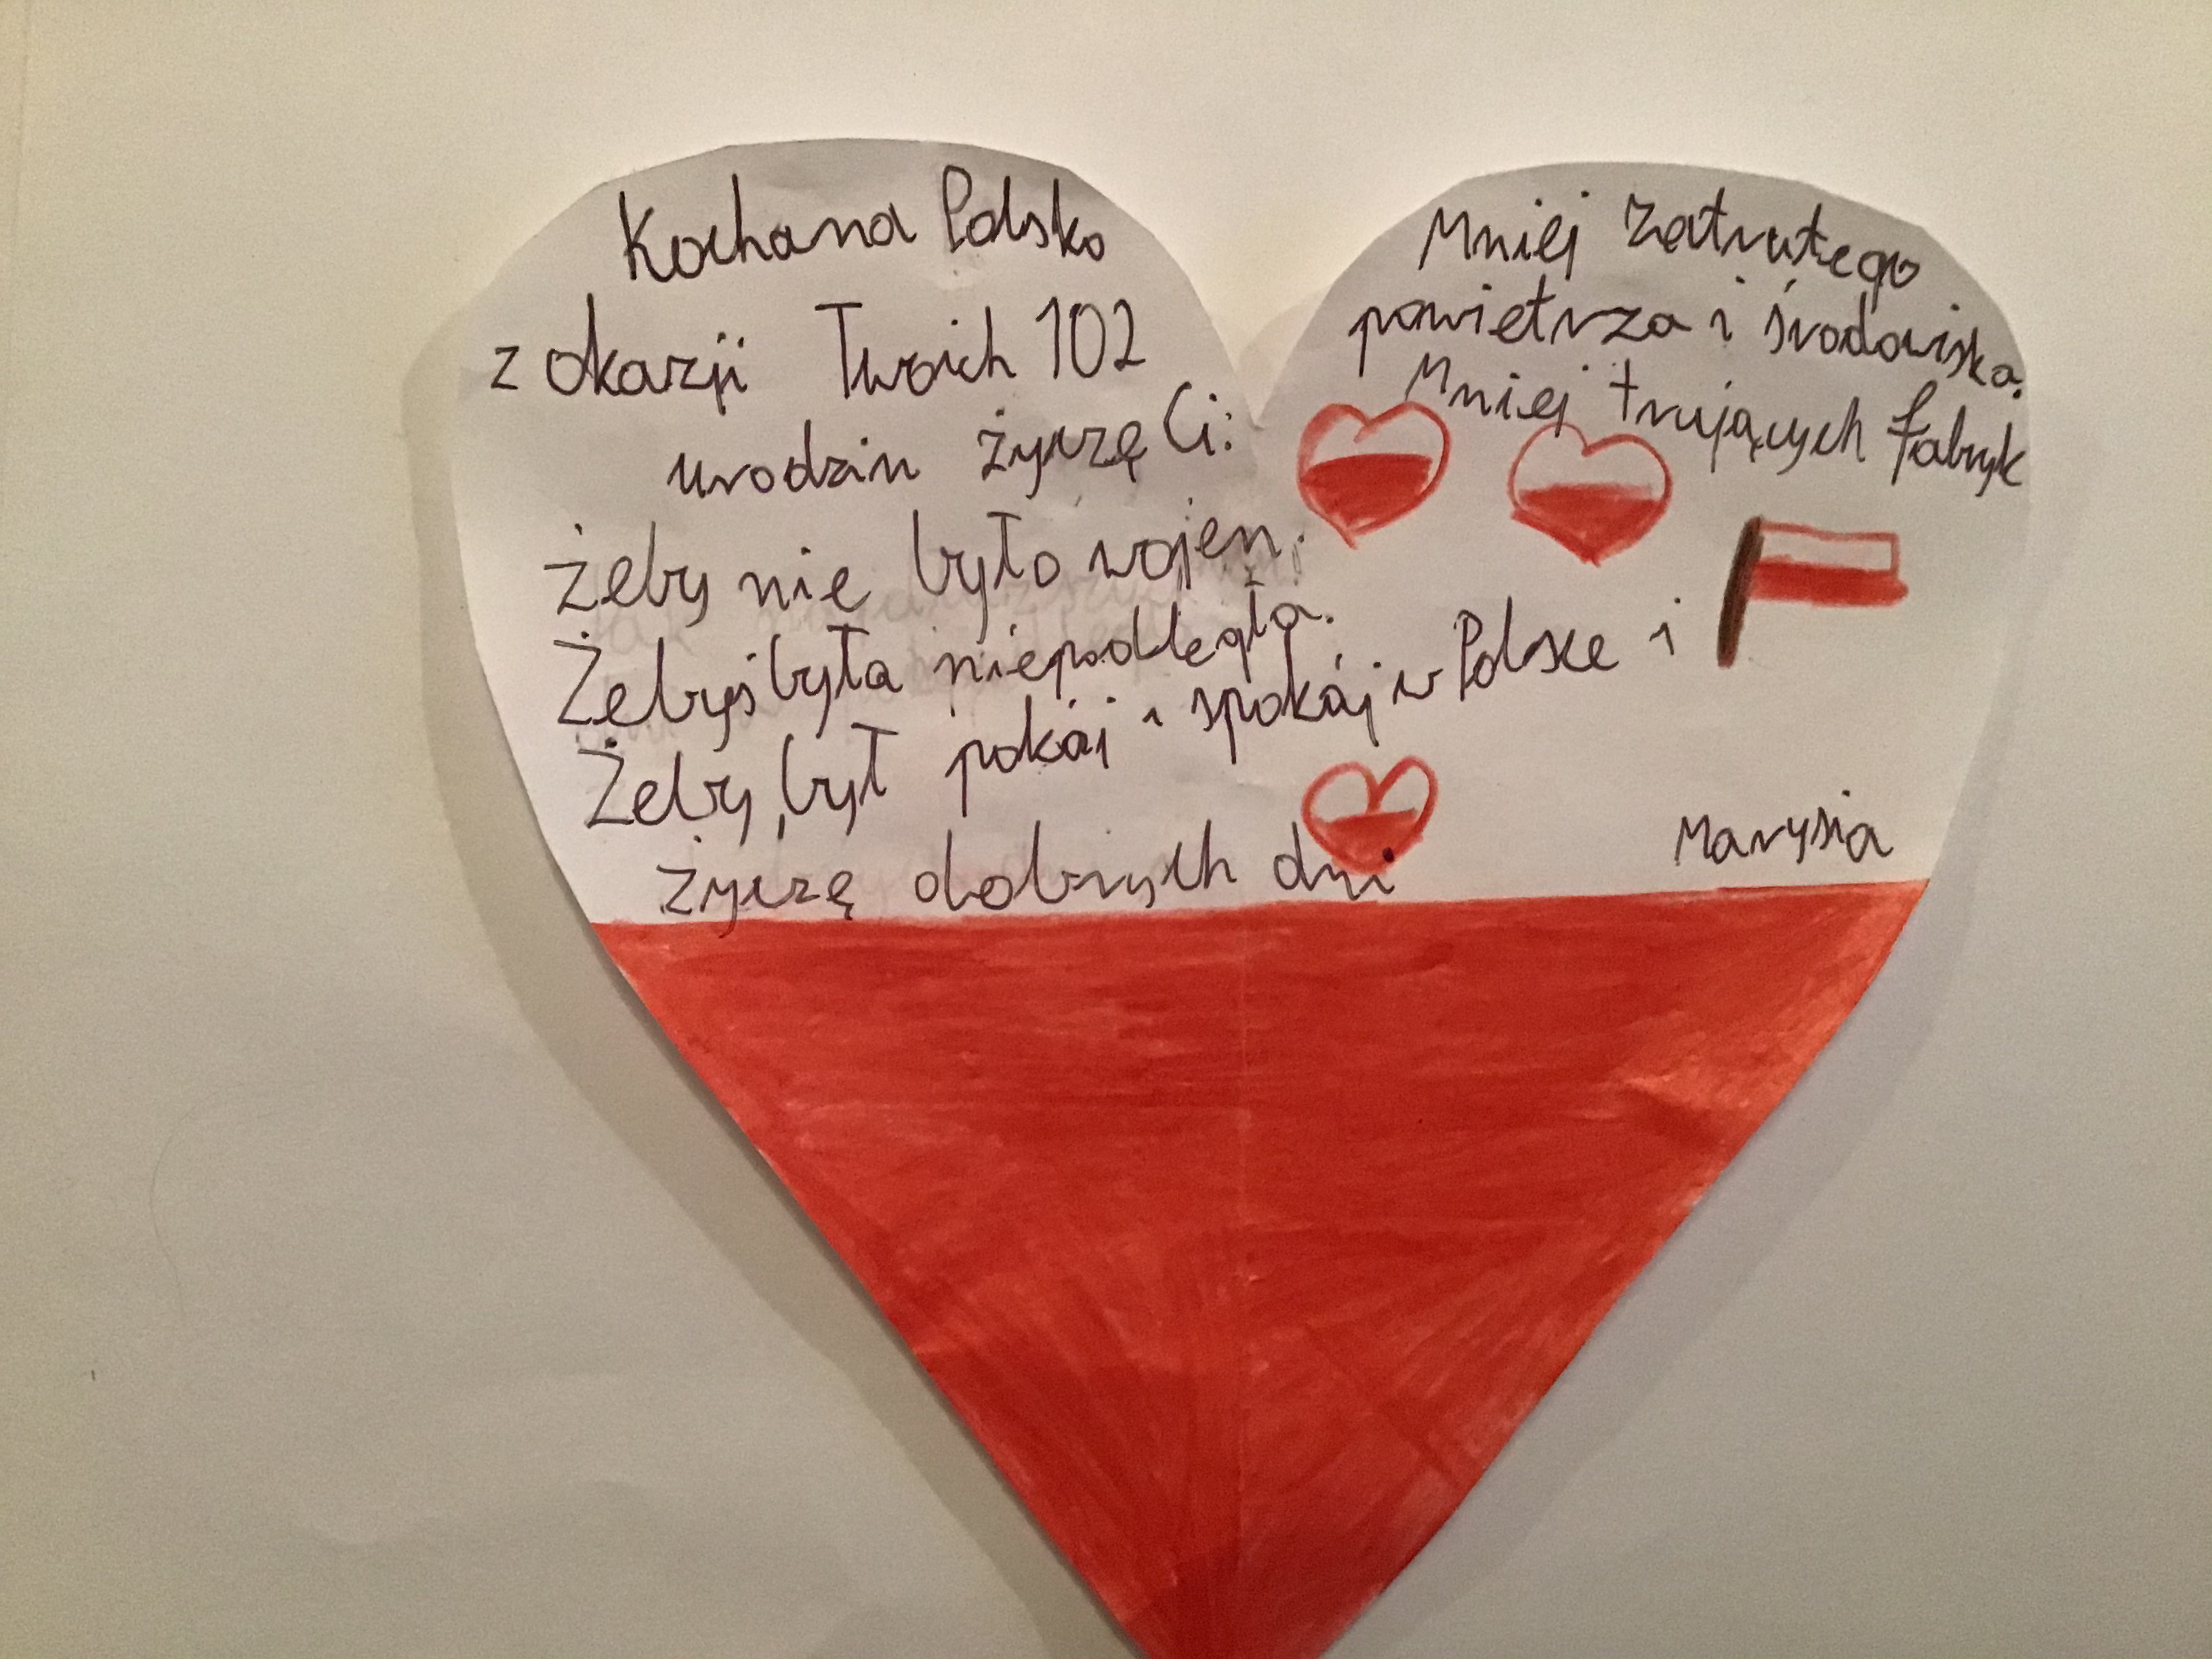 Kochana Polsko
z okazji Twoich 102
urodzin życzę Ci:
żeby nie było wojen.
Żebyś była niepodległa.
Żeby był pokój i spokój w Polsce i
życzę dobrych dni
Mniej zatrutego
powietrza i środowiska.
Mniej trujących fabryk
Marysia